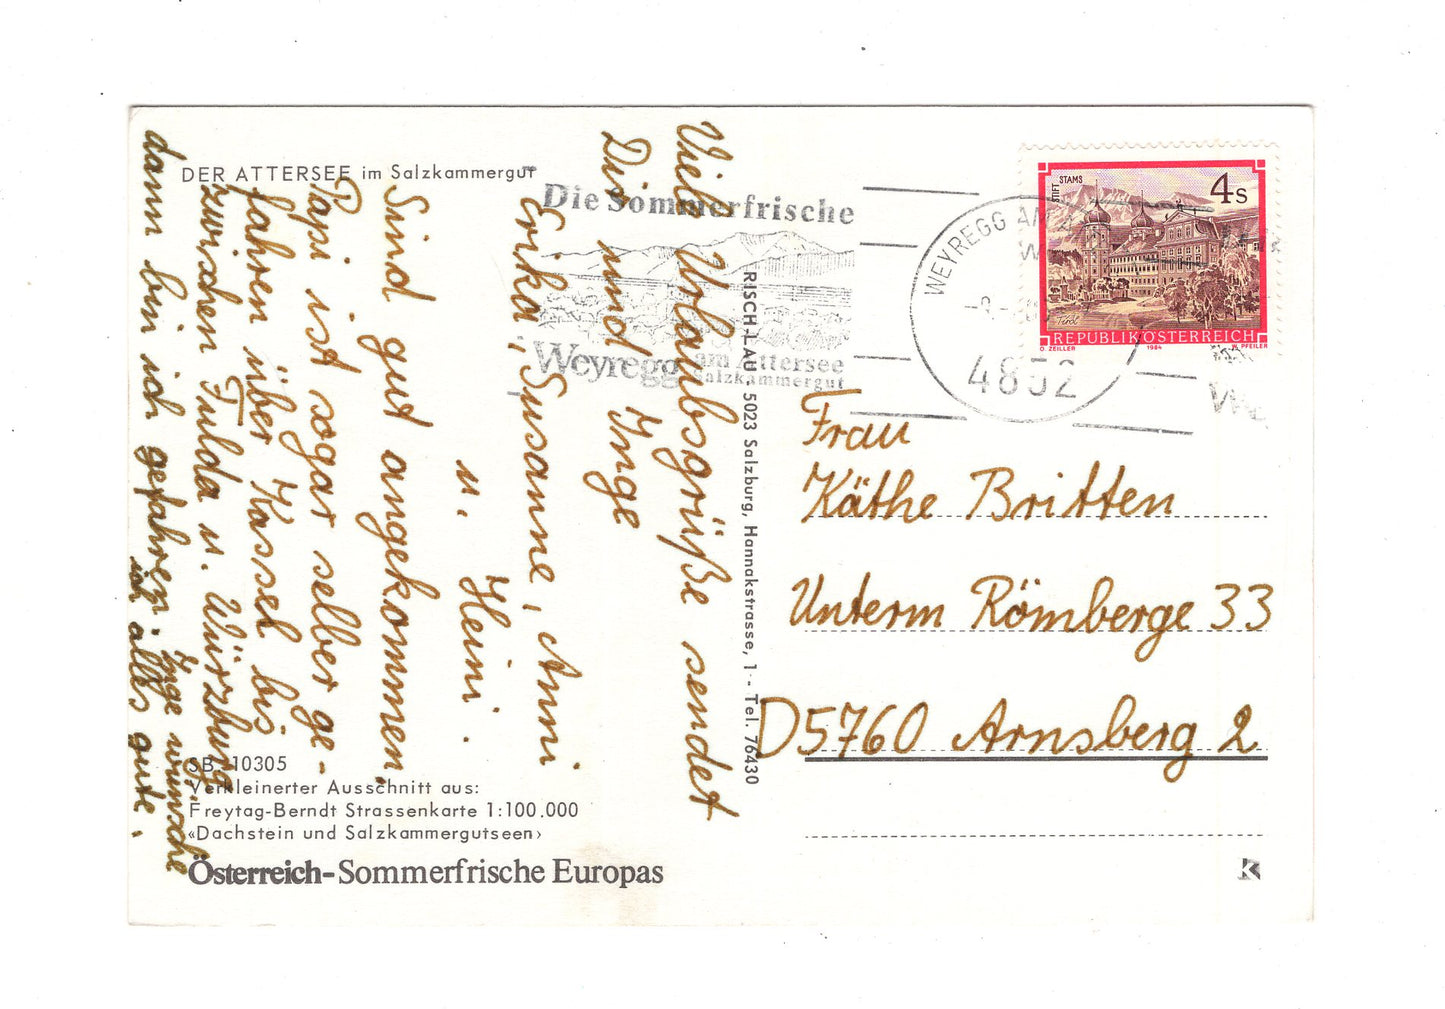 DER ATTERSEE im Salzkammergut
Viele Urlaubsgrüße sendet
Dir und Inge
Erika, Susanne, Anni
u. Heini.
Sind gut angekommen,
Papi ist sogar selber ge-
fahren über Kassel bis
zwischen Fulda u. Würzburg
dann bin ich gefahren. Inge wünsche
ich alles gute.
SB 10305
Verkleinerter Ausschnitt aus:
Freytag-Berndt Strassenkarte 1:100.000
«Dachstein und Salzkammergutseen»
Österreich-Sommerfrische Europas
RISCH-LAU, 5023 Salzburg, Hannakstrasse, 1 - Tel. 76430
Die Sommerfrische
Weyregg am Attersee
Salzkammergut
WEYREGG AM
4852
STIFT STAMS
4 S
Tirol
REPUBLIK ÖSTERREICH
O. ZEILLER 1984 W. PFEILER
Frau
Käthe Britten
Unterm Römberge 33
D5760 Arnsberg 2